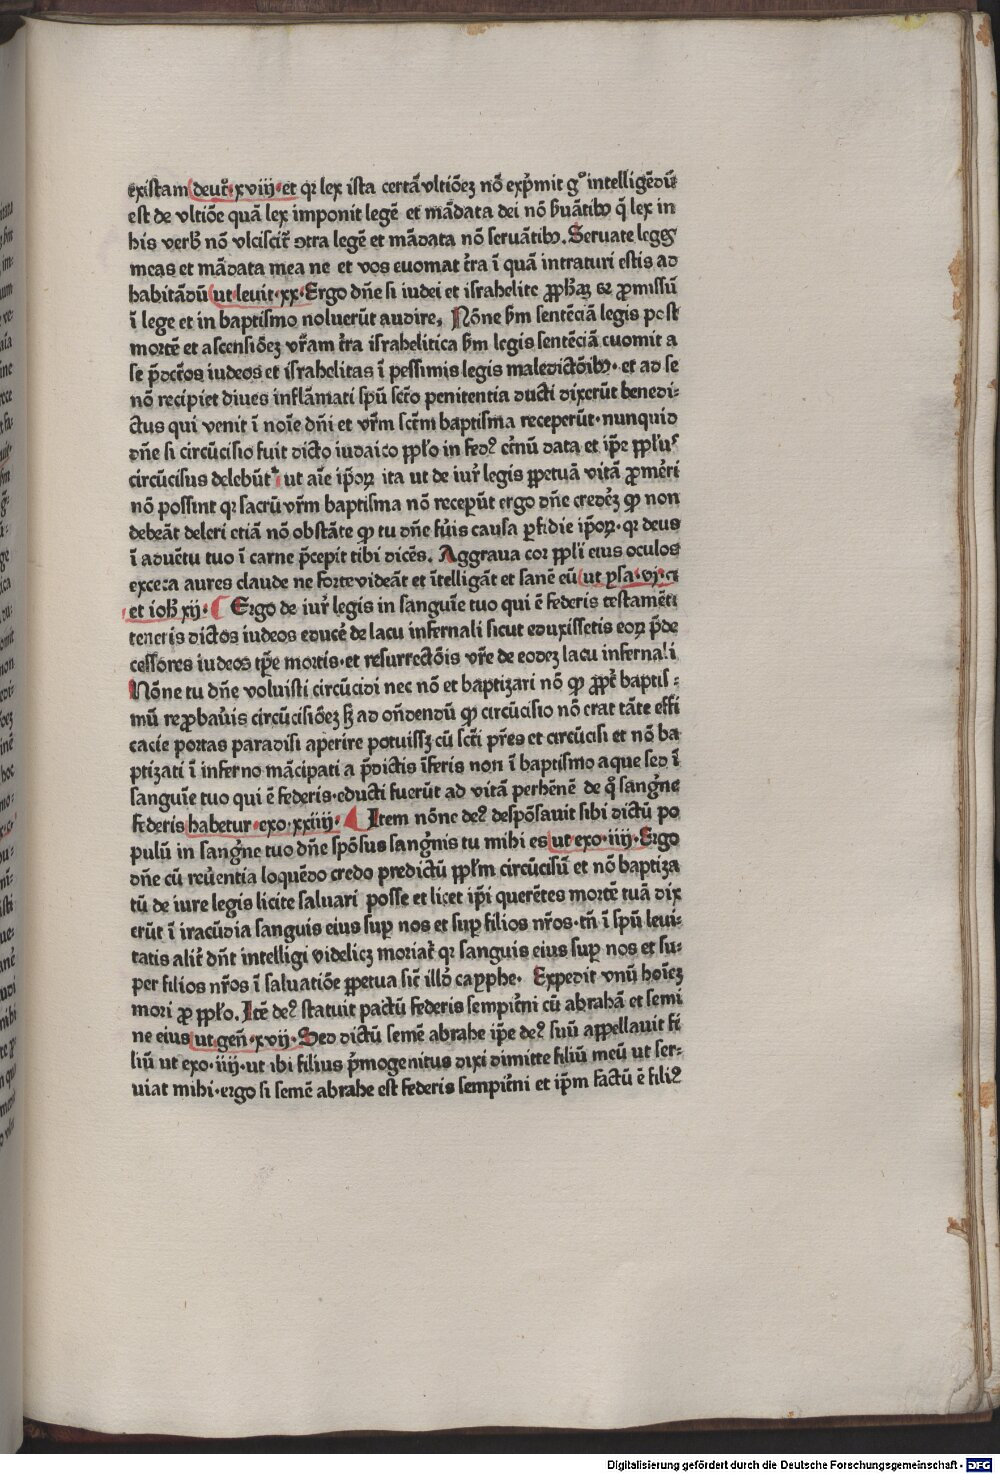 existam deut͛·xviij·et qꝛ lex ista certā vltiōeʒ nō exp̄mit gͦ intelligēdū
est de vltiōe quā lex imponit legē et mādata dei nō ẜuātibꝰ q̄ lex in
his verb̓ nō vlciscit͛ ɔtra legē et mādata nō seruātibꝰ. Seruate leges
meas et mādata mea ne et vos euomat t͛ra ī quā intraturi estis ad
habitādū ut leuit·xx·Ergo dn̄e si iudei et israhelite ꝓph̓aꝫ ⁊ ꝓmissū
ī lege et in baptismo noluerūt audire, Nōne ẜm sentēciā legis post
mortē et ascensiōeʒ vr̄am t͛ra israhelitica ẜm legis sentēciā euomit a
se p̄dc̄tos iudeos et israhelitas ī pessimis legis maledictōibꝰ· et ad se
nō recipiet diues inflāmati spū sc̄to penitentia ducti dixerūt benedi-
ctus qui venit ī noīe dn̄i et vr̄m sc̄tm baptisma receperūt·nunquid
dn̄e si circūcisio fuit dicto iudaico ppl̓o in fedꝰ et͛nū data et ip̄e ppl̓us
circūcisus delebūt᷑ ut aīe ip̄oꝝ ita ut de iur̓ legis ꝑpetuā vitā ꝓmēri
nō possint qꝛ sacrū vr̄m baptisma nō recepūt ergo dn̄e credeʒ ꝙ non
debeāt deleri etiā nō obstāte ꝙ tu dn̄e fuis causa ꝑfidie ip̄oꝝ·qꝛ deus
ī aduētu tuo ī carne p̄cepit tibi dicēs. Aggraua cor ppl̓i eius oculos
exceca aures claude ne forte videāt et ītelligāt et sanē eū ut ysa·vj·ca
et ioh̓ xij· Ergo de iur̓ legis in sanguīe tuo qui ē federis testamēti
teneris dictos iudeos educe͛ de lacu infernali sicut eduxissetis eoꝝ p̄de
cessores iudeos tp̄e mortis·et resurrectōis vr̄e de eodeʒ lacu infernali
Nōne tu dn̄e voluisti circūcidi nec nō et baptizari nō ꝙ ꝓpt͛ baptis-
mū reꝓbau͛is circūcisiōeʒ sʒ ad on̄dendū ꝙ circūcisio nō erat tāte effi
cacie portas paradisi aperire potuissʒ cū sc̄ti pr̄es et circūcisi et nō ba
ptizati ī inferno mācipati a p̄dictis īferis non ī baptismo aque sed ī
sanguīe tuo qui ē federis·educti fuerūt ad vitā perhēnē de qͦ sangͥne
federis habetur·exo·xxiiij· Item nōne deꝰ despōsauit sibi dictū po
pulū in sangͥne tuo dn̄e spōsus sangͥnis tu mihi es ut exo·iiij·Ergo
dn̄e cū reu͛entia loquēdo credo predictū ppl̓m circūcisū et nō baptiza
tū de iure legis licite saluari posse et licet ip̄i querētes mortē tuā dix
erūt ī iracūdia sanguis eius suꝑ nos et suꝑ filios nr̄os·tn̄ ī spū leui-
tatis alit͛ dn̄t intelligi videliceʒ moriat͛ qꝛ sanguis eius suꝑ nos et su-
per filios nr̄os ī saluatiōe ꝑpetua sic̄ illō cayphe· Expedit vnū hoīeʒ
mori ꝓ ppl̓o. Itē deꝰ statuit pactū federis sempit͛ni cū abrahā et semi
ne eius ut gen̄·xvij·Sed dictū semē abrahe ip̄e deꝰ suū appellauit fi
liū ut exo·iiij·ut ibi filius p̄mogenitus dixi dimitte filiū meū ut ser-
uiat mihi·ergo si semē abrahe est federis sempit͛ni et ip̄m factū ē filiꝰ
Digitalisierung gefördert durch die Deutsche Forschungsgemeinschaft - DFG